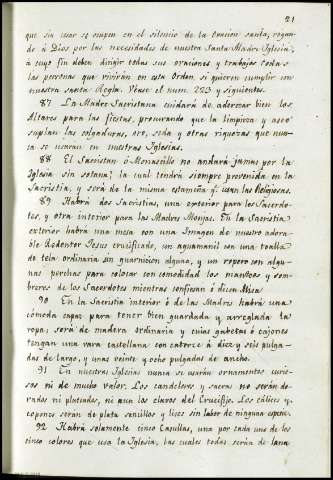 21
que sin cesar se ocupen en el silencio de la Oracion santa, rogan-
do á Dios por las necesidades de nuestra Santa Madre Iglesia,
á cuyo fin deben dirigir todas sus oraciones y trabajos todas
las personas que vivirán en esta Orden, si quieren cumplir con
nuestra santa Regla. Vease el num. 223 y siguientes.
87 La Madre Sacristana cuidará de aderezar bien los
Altares para las fiestas, procurando que la limpieza y aseo
suplan las colgaduras, oro, seda y otras riquezas que nun-
ca se usarán en nuestras Iglesias.
88 El Sacristan ó Monacillo no andará jamas por la
Iglesia sin sotana; la cual tendrá siempre prevenida en la
Sacristía, y será de la misma estameña q.e usan las Religiosas.
89 Habrá dos Sacristias, una exterior para los Sacerdo-
tes, y otra interior para las Madres Monjas. En la Sacristia
exterior habrá una mesa con una Imagen de nuestro adora-
ble Redentor Jesus crucificado, un aguamanil con una toalla
de tela ordinaria sin guarnicion alguna, y un ropero con algu-
nas perchas para colocar con comodidad los manteos y som-
breros de los Sacerdotes mientras confiesan ó dicen Misa.
90 En la Sacristia interior ó de las Madres habrá una
cómoda capaz para tener bien guardada y arreglada la
ropa; será de madera ordinaria y cuias gabetas ó cajones
tengan una vara castellana con catorce á diez y seis pulga-
das de largo, y unas veinte y ocho pulgadas de ancho.
91 En nuestras Iglesias nunca se usarán ornamentos curio-
sos ni de mucho valor. Los candeleros y sacras no serán do-
rados ni plateados, ni aun los clavos del Crucifijo. Los cálices y
copones serán de plata sencillos y lisos sin labor de ninguna especie.
92 Habrá solamente cinco Casullas, una por cada uno de los
cinco colores que usa la Iglesia, las cuales todas serán de lana